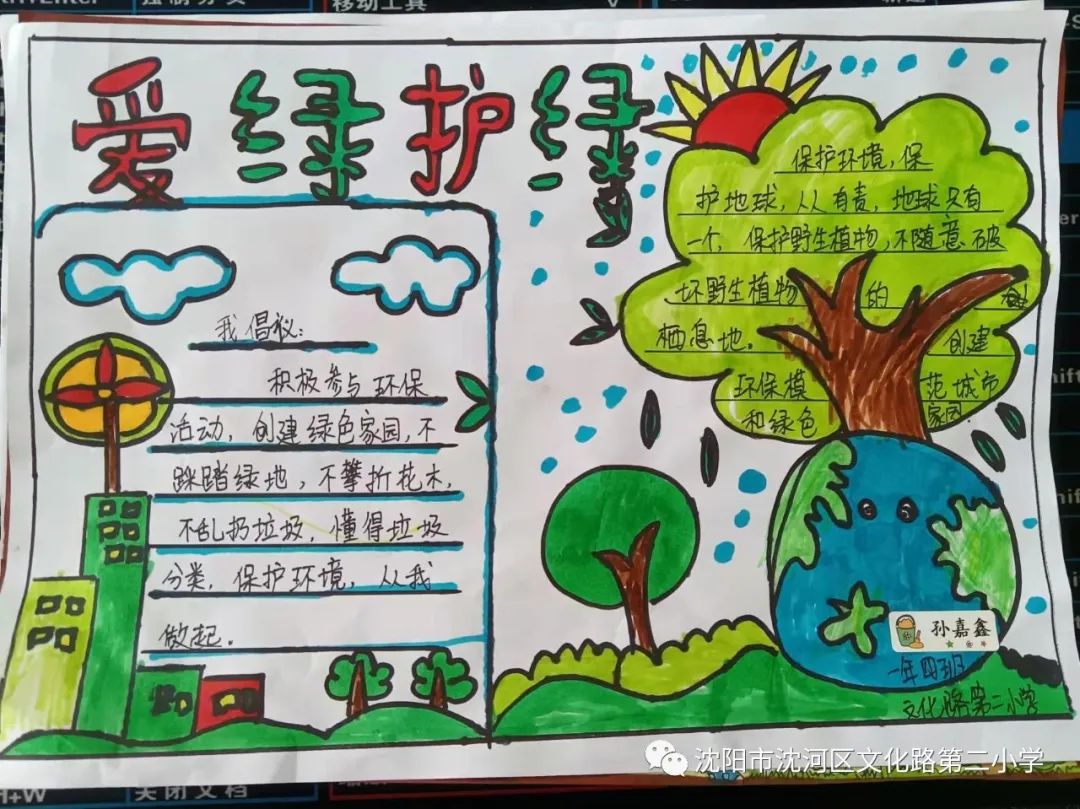 移动工具
爱绿护绿
我倡议:
积极参与环保
活动,创建绿色家园,不
踩踏绿地,不攀折花木,
不乱扔垃圾,懂得垃圾
分类,保护环境,从我
做起.
保护环境,保
护地球,从人有责,地球只有
一个,保护野生植物,不随意破
坏野生植物的
栖息地.创建
环保模范城市
和绿色家园
孙嘉鑫
一年四班
文化路第二小学
沈阳市沈河区文化路第二小学
关闭文档